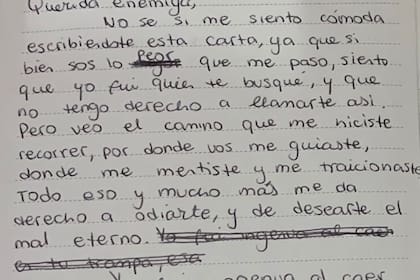 Querida enemiga,
No se si me siento cómoda
escribiendote esta carta, ya que si
bien sos lo Peor que me paso, siento
que yo fui quien te busqué, y que
no tengo derecho a llamarte asi.
Pero veo el camino que me hiciste
recorrer, por donde vos me guiaste,
donde me mentiste y me traicionaste
Todo eso y mucho más me da
derecho a odiarte, y de desearte el
mal eterno. Yo fui ingenua al caer
en tu trampa esa
ingenua al caer